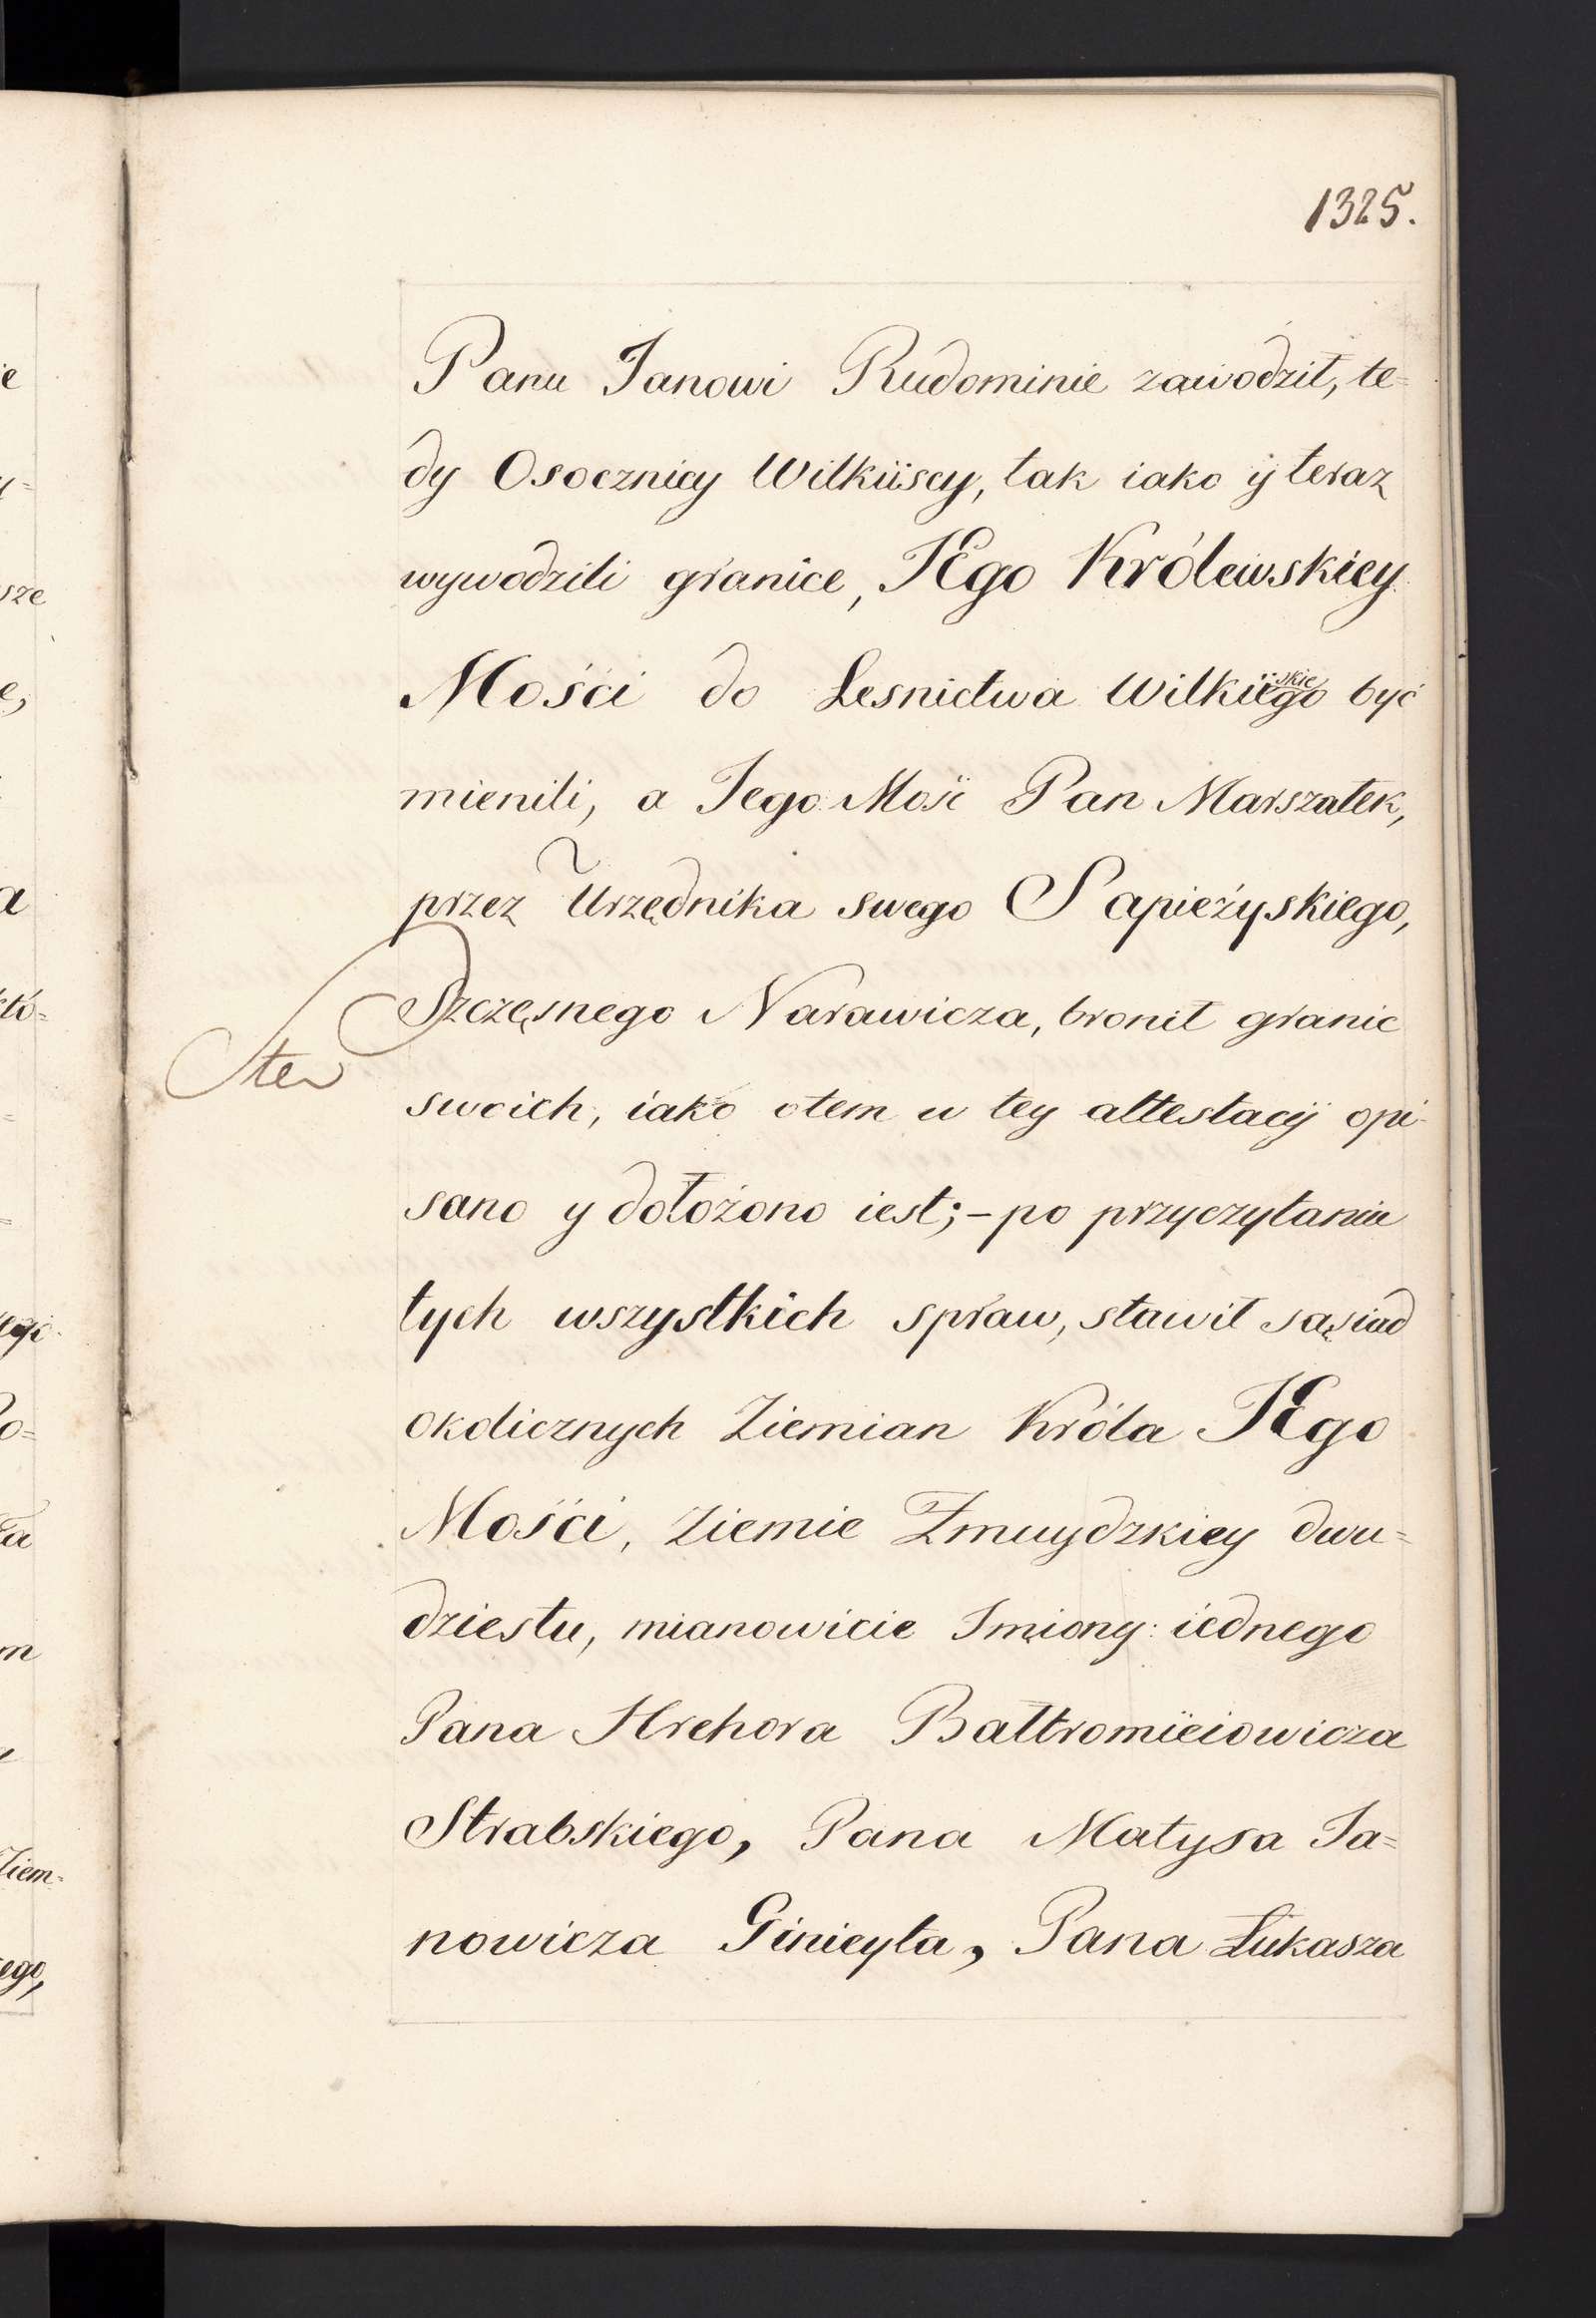 1325.
Panu Janowi Rudominie zawodził, te=
dy Osocznicy Wilkiiscy, tak iako ÿ teraz
wywodzili granice, JEgo Królewskiey
Mośći do Lesnictwa Wilkiiskiego być
mienili, a Jego Mość Pan Marszałek,
przez Urzędnika swego Sapieżyskiego,
Szczęsnego Narawicza, bronił granic
swoich, iako otem w tey attestacÿ opi-
sano y dołożono iest; – po przyczytaniu
tych wszystkich spraw, stawił sąsiad
okolicznych Ziemian Króla JEgo
Mośći, Ziemie Zmuydzkiey dwu=
dziestu, mianowicie Imiony: iednego
Pana Hrehora Bałtromieiowicza
Strabskiego, Pana Matysa Ja=
nowicza Ginieyta, Pana Łukasza